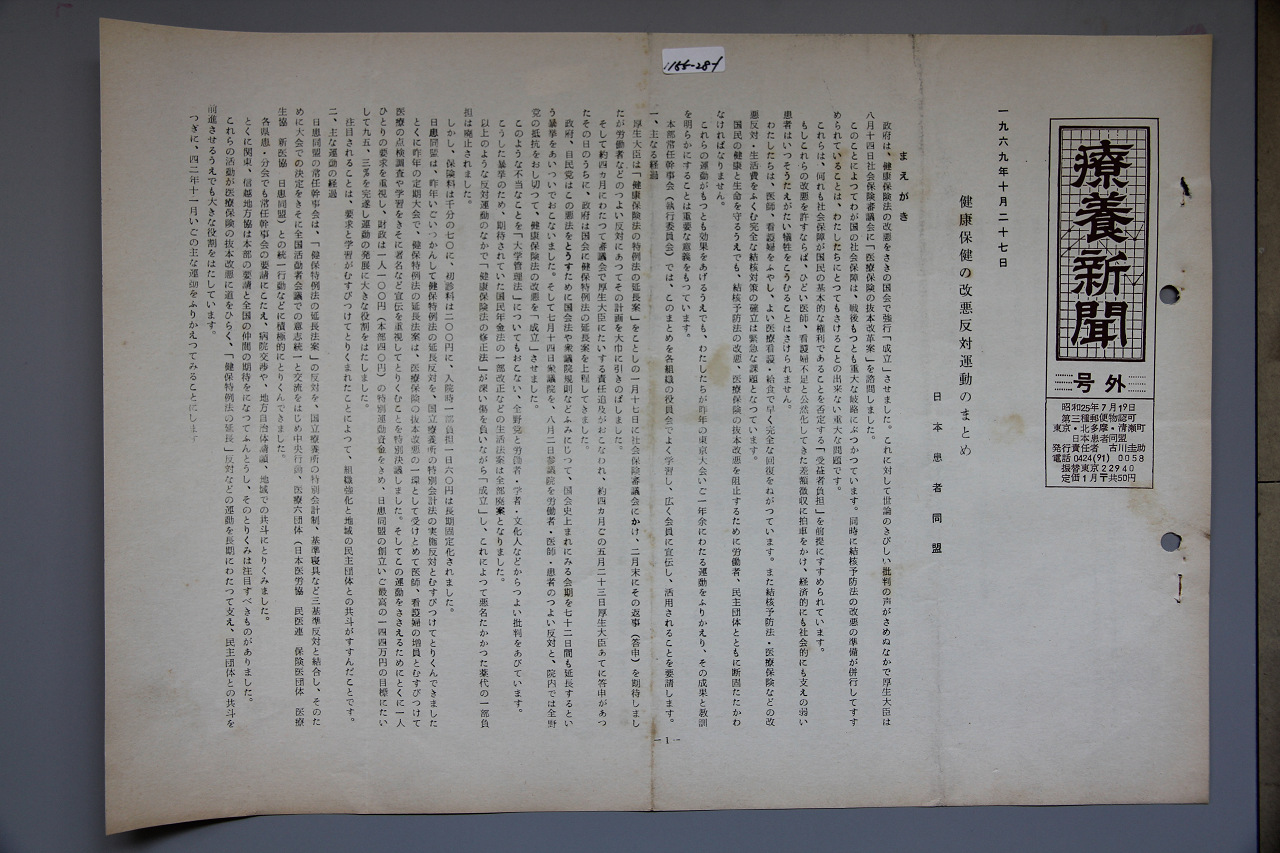 1155-28-1
療養新聞
号外
昭和25年7月19日
第三種郵便物認可
東京・北多摩・清瀬町
日本患者同盟
発行責任者 古川圭助
電話0424(91)0058
振替東京22940
定価1月〒共50円
一九六九年十月二十七日
健康保健の改悪反対運動のまとめ
日本患者同盟
まえがき
政府は、健康保険法の改悪をさきの国会で強行「成立」させました。これに対して世論のきびしい批判の声がさめぬなかで厚生大臣は
八月十四日社会保険審議会に「医療保険の抜本改革案」を諮問しました。
このことによつてわが国の社会保障は、戦後もつとも重大な岐路にぶつかつています。同時に結核予防法の改悪の準備が併行してすす
められていることは、わたしたちにとつてもさけることの出来ない重大な問題です。
これらは、何れも社会保障が国民の基本的な権利であることを否定する「受益者負担」を前提にすすめられています。
もしこれらの改悪を許すならば、ひどい医師、看護婦不足と公然化してきた差額徴収に拍車をかけ、経済的にも社会的にも支えの弱い
患者はいつそうたえがたい犠牲をこうむることはさけられません。
わたしたちは、医師、看護婦をふやし、よい医療看護・給食で早く完全な回復をねがつています。また結核予防法・医療保険などの改
悪反対・生活費をふくむ完全な結核対策の確立は緊急な課題となつています。
国民の健康と生命を守るうえでも、結核予防法の改悪、医療保険の抜本改悪を阻止するために労働者、民主団体とともに断固たたかわ
なければなりません。
これらの運動がもつとも効果をあげるうえでも、わたしたちが昨年の東京大会いご一年余にわたる運動をふりかえり、その成果と教訓
を明らかにすることは重要な意義をもつています。
本部常任幹事会(執行委員会)では、このまとめを各組織の役員会でよく学習し、広く会員に宣伝し、活用されることを要請します。
一、主なる経過
厚生大臣は「健康保険法の特例法の延長案」をことしの一月十七日に社会保険審議会にかけ、二月末にその返事(答申)を期待しまし
たが労働者などのつよい反対にあつてその計画を大巾に引きのばしました。
そして約四ヵ月にわたつて審議会で厚生大臣にたいする責任追及がおこなわれ、約四ヵ月ごの五月二十三日厚生大臣あてに答申があつ
たその日のうちに、政府は国会に健保特例法の延長案を上程してきました。
政府、自民党はこの悪法をとうすために国会法や衆議院規則などふみにじつて、国会史上まれにみる会期を七十二日間も延長するとい
う暴挙をあいついでおこないました。そして七月十四日衆議院を、八月二日参議院を労働者・医師・患者のつよい反対と、院内では全野
党の抵抗をおし切つて、健康保険法の改悪を「成立」させました。
このような不当なことを「大学管理法」についてもおこない、全野党と労働者・学者・文化人などからつよい批判をあびています。
こうした暴挙のため、期待されていた国民年金法の一部改正などの生活法案は全部廃案となりました。
以上のような反対運動のなかで「健康保険法の修正法」が深い傷を負いながら「成立」し、これによつて悪名たかかつた薬代の一部負
担は廃止されました。
しかし、保険料は千分の七〇に、初診料は二〇〇円に、入院時一部負担一日六〇円は長期固定化されました。
日患同盟は、昨年いごいつかんして健保特例法の延長反対を、国立療養所の特別会計法の実施反対とむすびつけてとりくんできました
とくに昨年の定期大会で、健保特例法の延長法案は、医療保険の抜本改悪の一環として受けとめて医師、看護婦の増員とむすびつけて
医療の点検調査や学習をきそに署名など宣伝を重視してとりくむことを特別決議しました。そしてこの運動をささえるためにとくに一人
ひとりの要求を重視し、財政は一人一〇〇円(本部四〇円)の特別運動資金をきめ、日患同盟の創立いご最高の一四四万円の目標にたい
して九五、三%を完遂し運動の発展に大きな役割をはたしました。
注目されることは、要求と学習がむすびつけてとりくまれたことによつて、組織強化と地域の民主団体との共斗がすすんだことです。
二、主な運動の経過
日患同盟の常任幹事会は、「健保特例法の延長法案」の反対を、国立療養所の特別会計制、基準寝具など三基準反対と結合し、そのた
めに大会での決定をきそに全国活動者会議での意志統一と交流をはじめ中央行動、医療六団体(日本医労協 民医連 保険医団体 医療
生協 新医協 日患同盟)との統一行動などに積極的にとりくんできました。
各県患・分会でも常任幹事会の要請にこたえ、病院交渉や、地方自治体請願、地域での共斗にとりくみました。
とくに関東、信越地方協は本部の要請と全国の仲間の期待をになつてふんとうし、そのとりくみは注目すべきものがありました。
これらの活動が医療保険の抜本改悪に道をひらく、「健保特例法の延長」反対などの運動を長期にわたつて支え、民主団体との共斗を
前進させるうえでも大きな役割をはたしています。
つぎに、四三年十一月いごの主な運動をふりかえつてみることにします
―1―